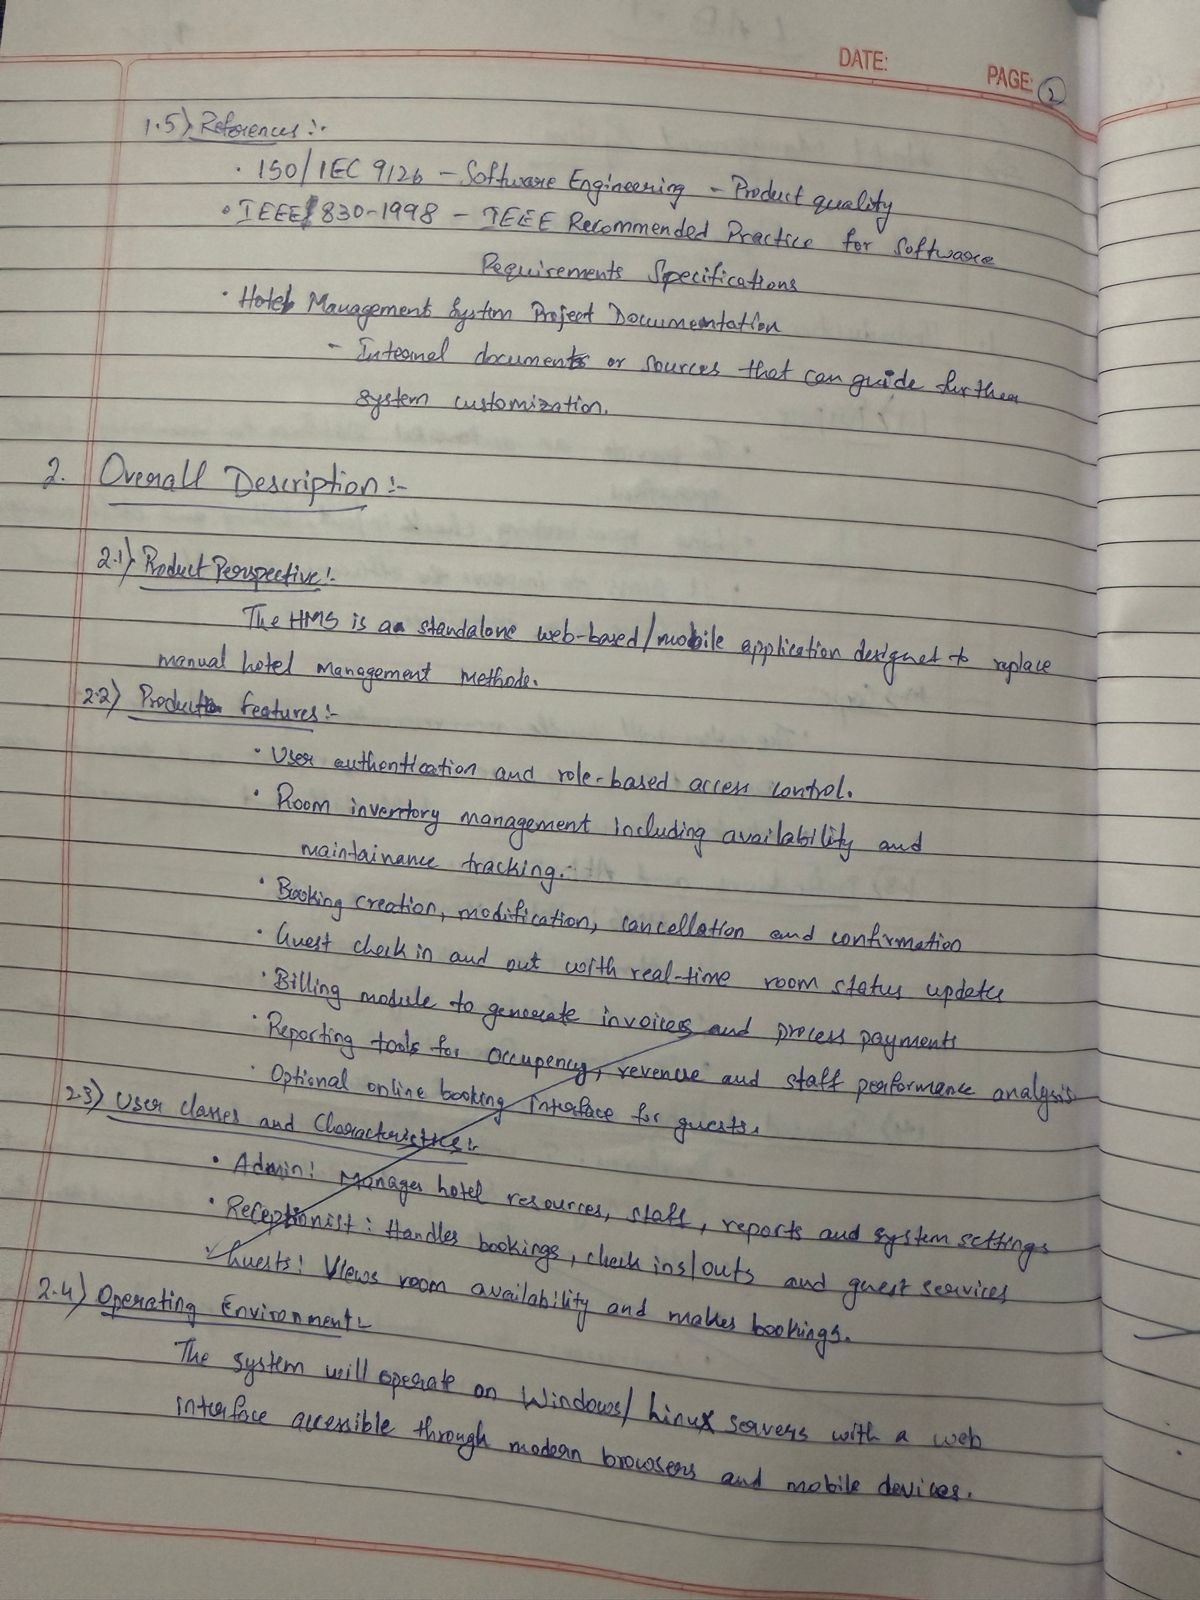 DATE:
PAGE: 2
1.5) References :-
· ISO/IEC 9126 - Software Engineering - Product quality
· IEEE 830-1998 - IEEE Recommended Practice for Software
Requirements Specifications
· Hotel Management System Project Documentation
- Internal documents or sources that can guide further
system customization.
2. Overall Description :-
2.1) Product Perspective :-
The HMS is a standalone web-based/mobile application designed to replace
manual hotel management methods.
2.2) Product features :-
· User authentication and role-based access control.
· Room inventory management including availability and
maintainance tracking.
· Booking creation, modification, cancellation and confirmation
· Guest check in and out with real-time room status updates
· Billing module to generate invoices and process payments
· Reporting tools for occupency, revenue and staff performance analysis.
· Optional online booking interface for guests.
2.3) User classes and Characteristics :-
· Admin: Manages hotel resources, staff, reports and system settings
· Receptionist : Handles bookings, check ins/outs and guest services
· Guests: Views room availability and makes bookings.
2.4) Operating Environment :-
The system will operate on Windows/Linux servers with a web
interface accessible through modern browsers and mobile devices.